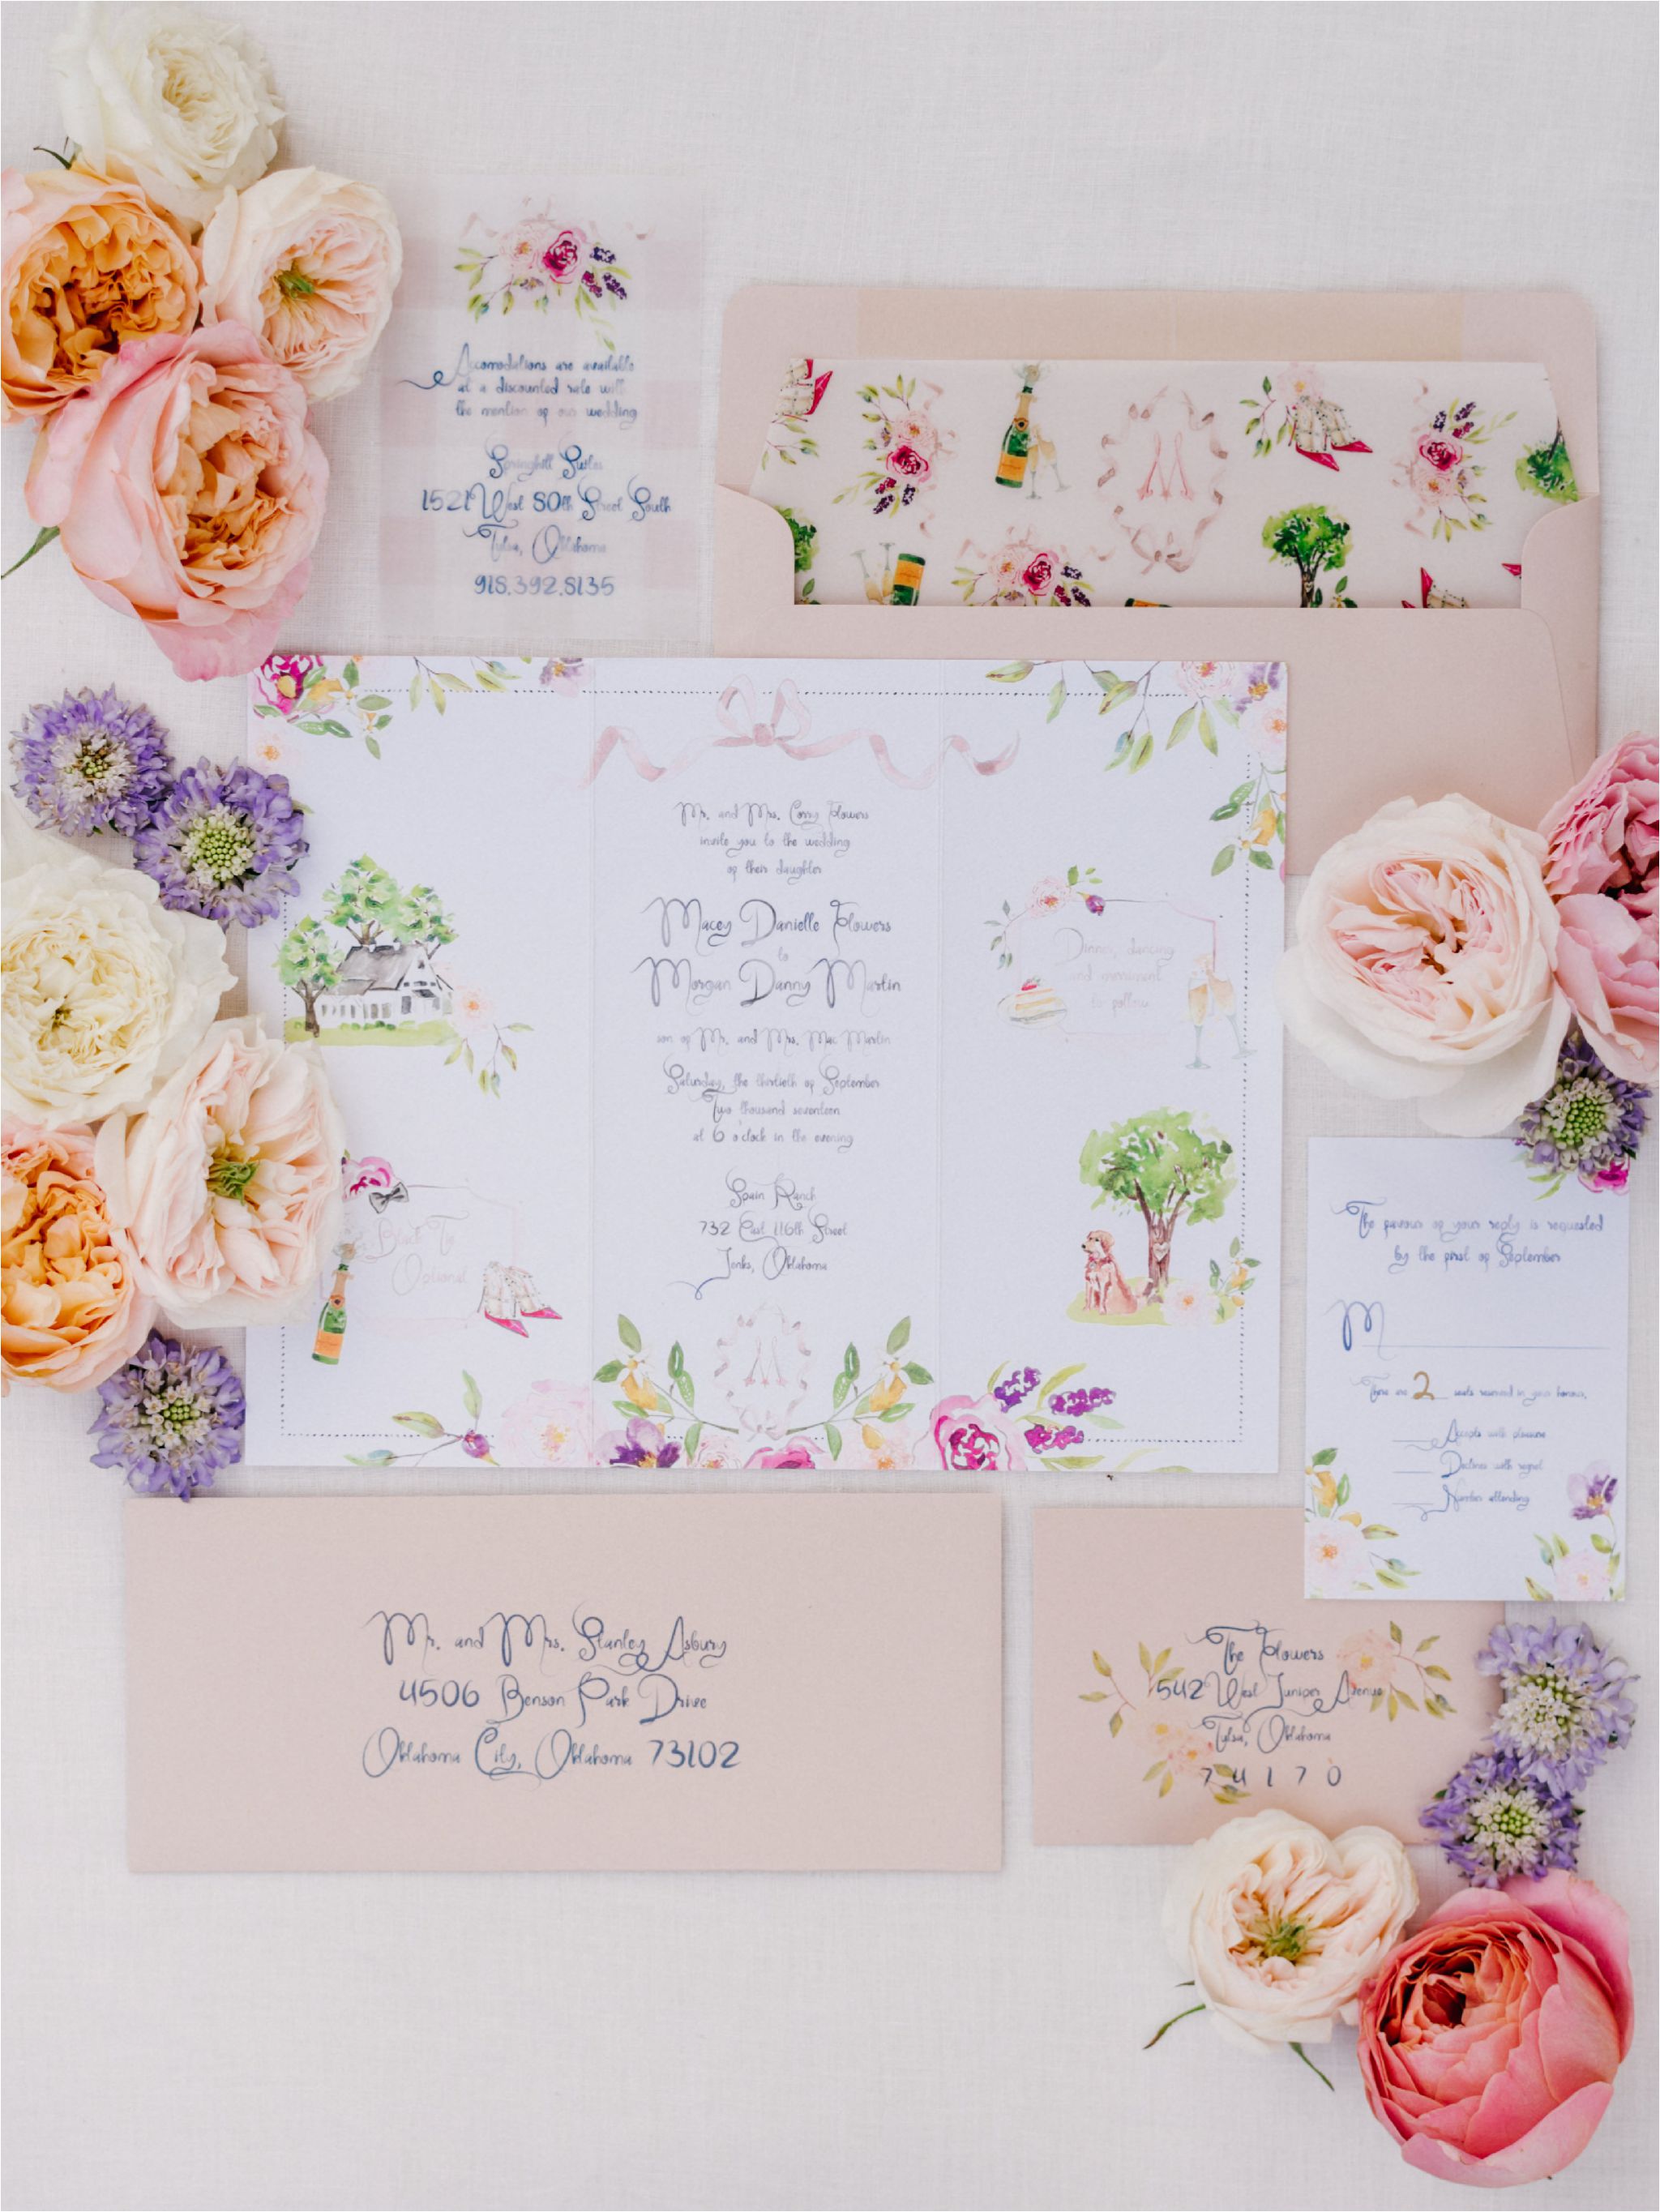 Accomodations are available
at a discounted rate with
the mention of our wedding
Springhill Suites
1521 West 80th Street South
Tulsa, Oklahoma
918.392.8135
Mr. and Mrs. Corry Flowers
invite you to the wedding
of their daughter
Macey Danielle Flowers
to
Morgan Danny Martin
son of Mr. and Mrs. Mac Martin
Saturday, the thirtieth of September
Two thousand seventeen
at 6 o'clock in the evening
Spain Ranch
732 East 116th Street
Jenks, Oklahoma
M
Black Tie
Optional
Dinner, dancing
and merriment
to follow
The favour of your reply is requested
by the first of September
M
There are 2 seats reserved in your honour.
Accepts with pleasure
Declines with regret
Number attending
Mr. and Mrs. Stanley Asbury
4506 Benson Park Drive
Oklahoma City, Oklahoma 73102
The Flowers
542 West Juniper Avenue
Tulsa, Oklahoma
74170